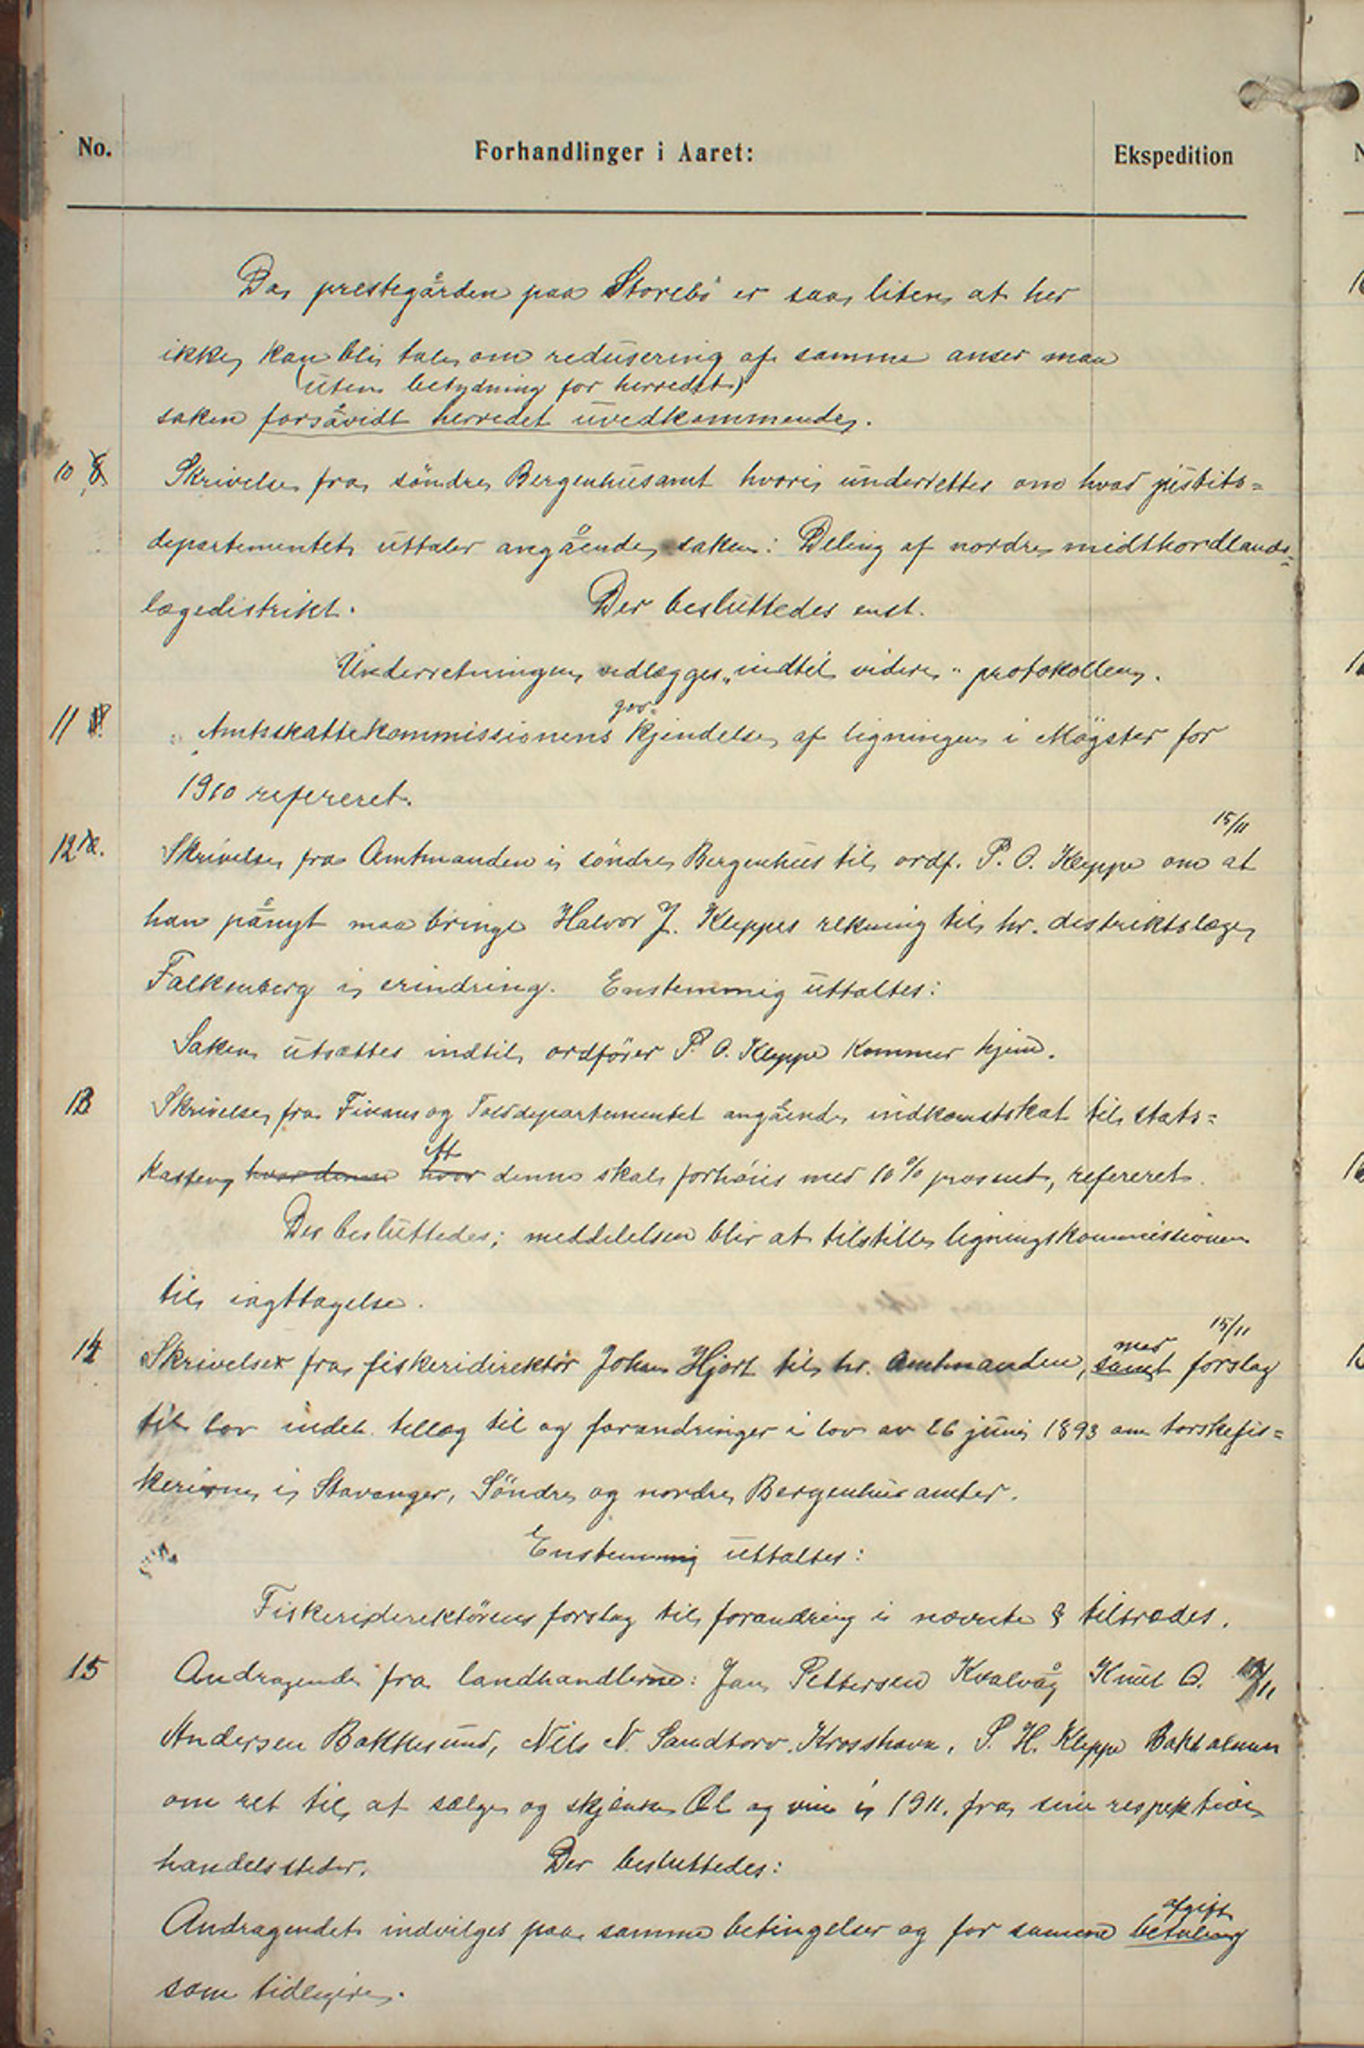 No. Forhandlinger i Aaret: Ekspedition
Da prestegården paa Storebö er saa liten at her
ikke kan bli tale om redusering af samme anser man
(uten betydning for herredet)
saken forsåvidt herredet uvedkommende.
10 Skrivelse fra söndre Bergenhusamt hvori underrettes om hvad justits=
departementet uttaler angående saken: Deling af nordre midthordlands=
lægedistrikt. Der besluttedes enst.
Underretningen vedlægges "indtil videre" protokollen.
gjen-
11 Amtsskattekommissionens kjendelse af ligningen i Mögster for
1910 refereret.
15/11
12 Skrivelse fra Amtmanden i söndre Bergenhus til ordf. P. O. Kleppe om at
han pånyt maa bringe Halvor J. Kleppes rekning til hr. distriktslæge
Falkenberg i erindring. Enstemmig uttaltes:
Saken utsættes indtil ordförer P. O. Kleppe kommer hjem.
13 Skrivelse fra Finans og Tolddepartementet angående indkomstskat til stats=
att
kassen hvor denne hvor denne skal forhöies med 10 % prosent, refereret.
Der besluttedes; meddelelsen blir at tilstille ligningskommissionen
til iagttagelse.
med 15/11
14 Skrivelser fra fiskeridirektör Johan Hjort til hr. Amtmanden, samt forslag
til lov indeh. tillæg til og forandringer i lov av 26 juni 1893 om torskefis=
kerierne i Stavanger, Söndre og nordre Bergenhus amter.
Enstemmig uttaltes:
Fiskeridirektörens forslag til forandring i nævnte § tiltrædes.
15 Andragende fra landhandlerne: Jan Pettersen Kvalvåg Knut O. /11
Andersen Bakkesund, Nils N. Sandtorv, Krosshavn, P. H. Kleppe Bakholmen
om ret til at sælge og skjænke Øl og vin i 1911. fra sine respektive
handelssteder. Der besluttedes:
afgift
Andragendet indvilges paa samme betingelser og for samme betaling
som tidligere.